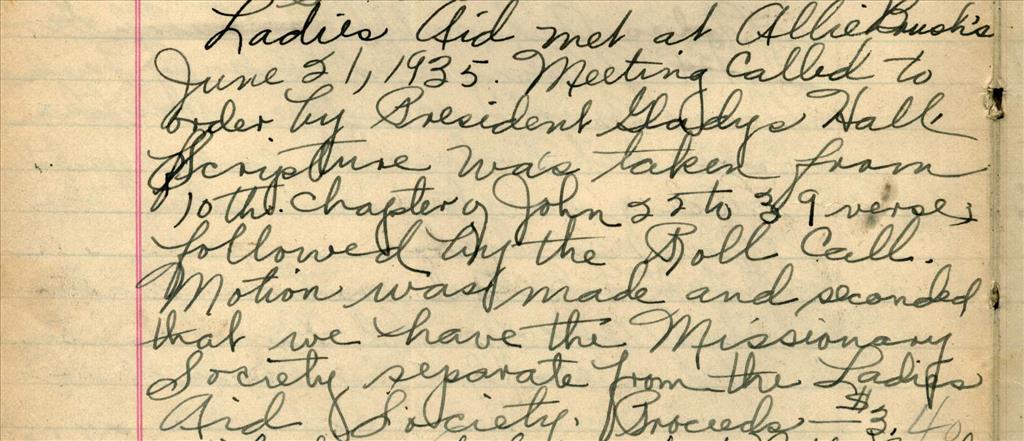 Ladies Aid met at Allie Brush's
June 21, 1935. Meeting called to
order by President Gladys Hall.
Scripture was taken from
10th. Chapter of John 22 to 39 verse,
followed by the Roll Call.
Motion was made and seconded
that we have the Missionary
Society separate from the Ladies
Aid Society. Proceeds — $3.40